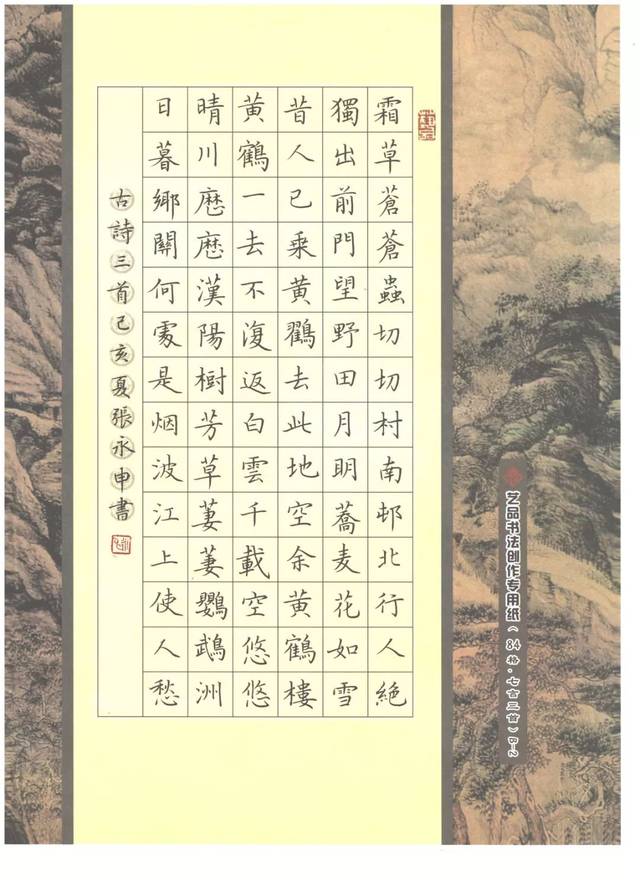 霜草蒼蒼蟲切切村南邨北行人絕
獨出前門望野田月明蕎麦花如雪
昔人已乘黄鶴去此地空余黄鶴樓
黄鶴一去不復返白雲千載空悠悠
晴川歷歷漢陽樹芳草萋萋鸚鵡洲
日暮鄉關何處是烟波江上使人愁
古詩三首己亥夏張永申書
艺品书法创作专用纸（84格·七言三首）B-2